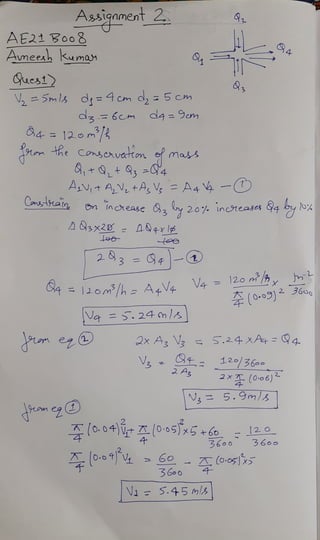 Assignment 2.
AE21B008
Avneesh Kumar
Ques1)
Q₂
Q₁
Q₄
Q₃
V₂ = 5m/s d₁ = 4cm d₂ = 5 cm
d₃ = 6cm d₄ = 9cm
Q₄ = 120 m³/h
from the conservation of mass
Q₁ + Q₂ + Q₃ = Q₄
A₁V₁ + A₂V₂ + A₃V₃ = A₄V₄ — ①
Constrain on increase Q₃ by 20% increases Q₄ by 10%
ΔQ₃ × 20/100 = ΔQ₄ × 10/100
2Q₃ = Q₄ — ②
Q₄ = 120 m³/h = A₄V₄ V₄ = 120 m³/h × m⁻² / π/4 (0.09)² 3600
V₄ = 5.24 m/s
from eq ② 2 × A₃ V₃ = 5.24 × A₄ = Q₄
V₃ = Q₄/2A₃ = 120/3600 / 2 × π/4 (0.06)²
V₃ = 5.9 m/s
from eq ①
π/4 (0.04)² V₁ + π/4 (0.05)² × 5 + 60/3600 = 120/3600
π/4 (0.04)² V₁ = 60/3600 - π/4 (0.05)² × 5
V₁ = 5.45 m/s